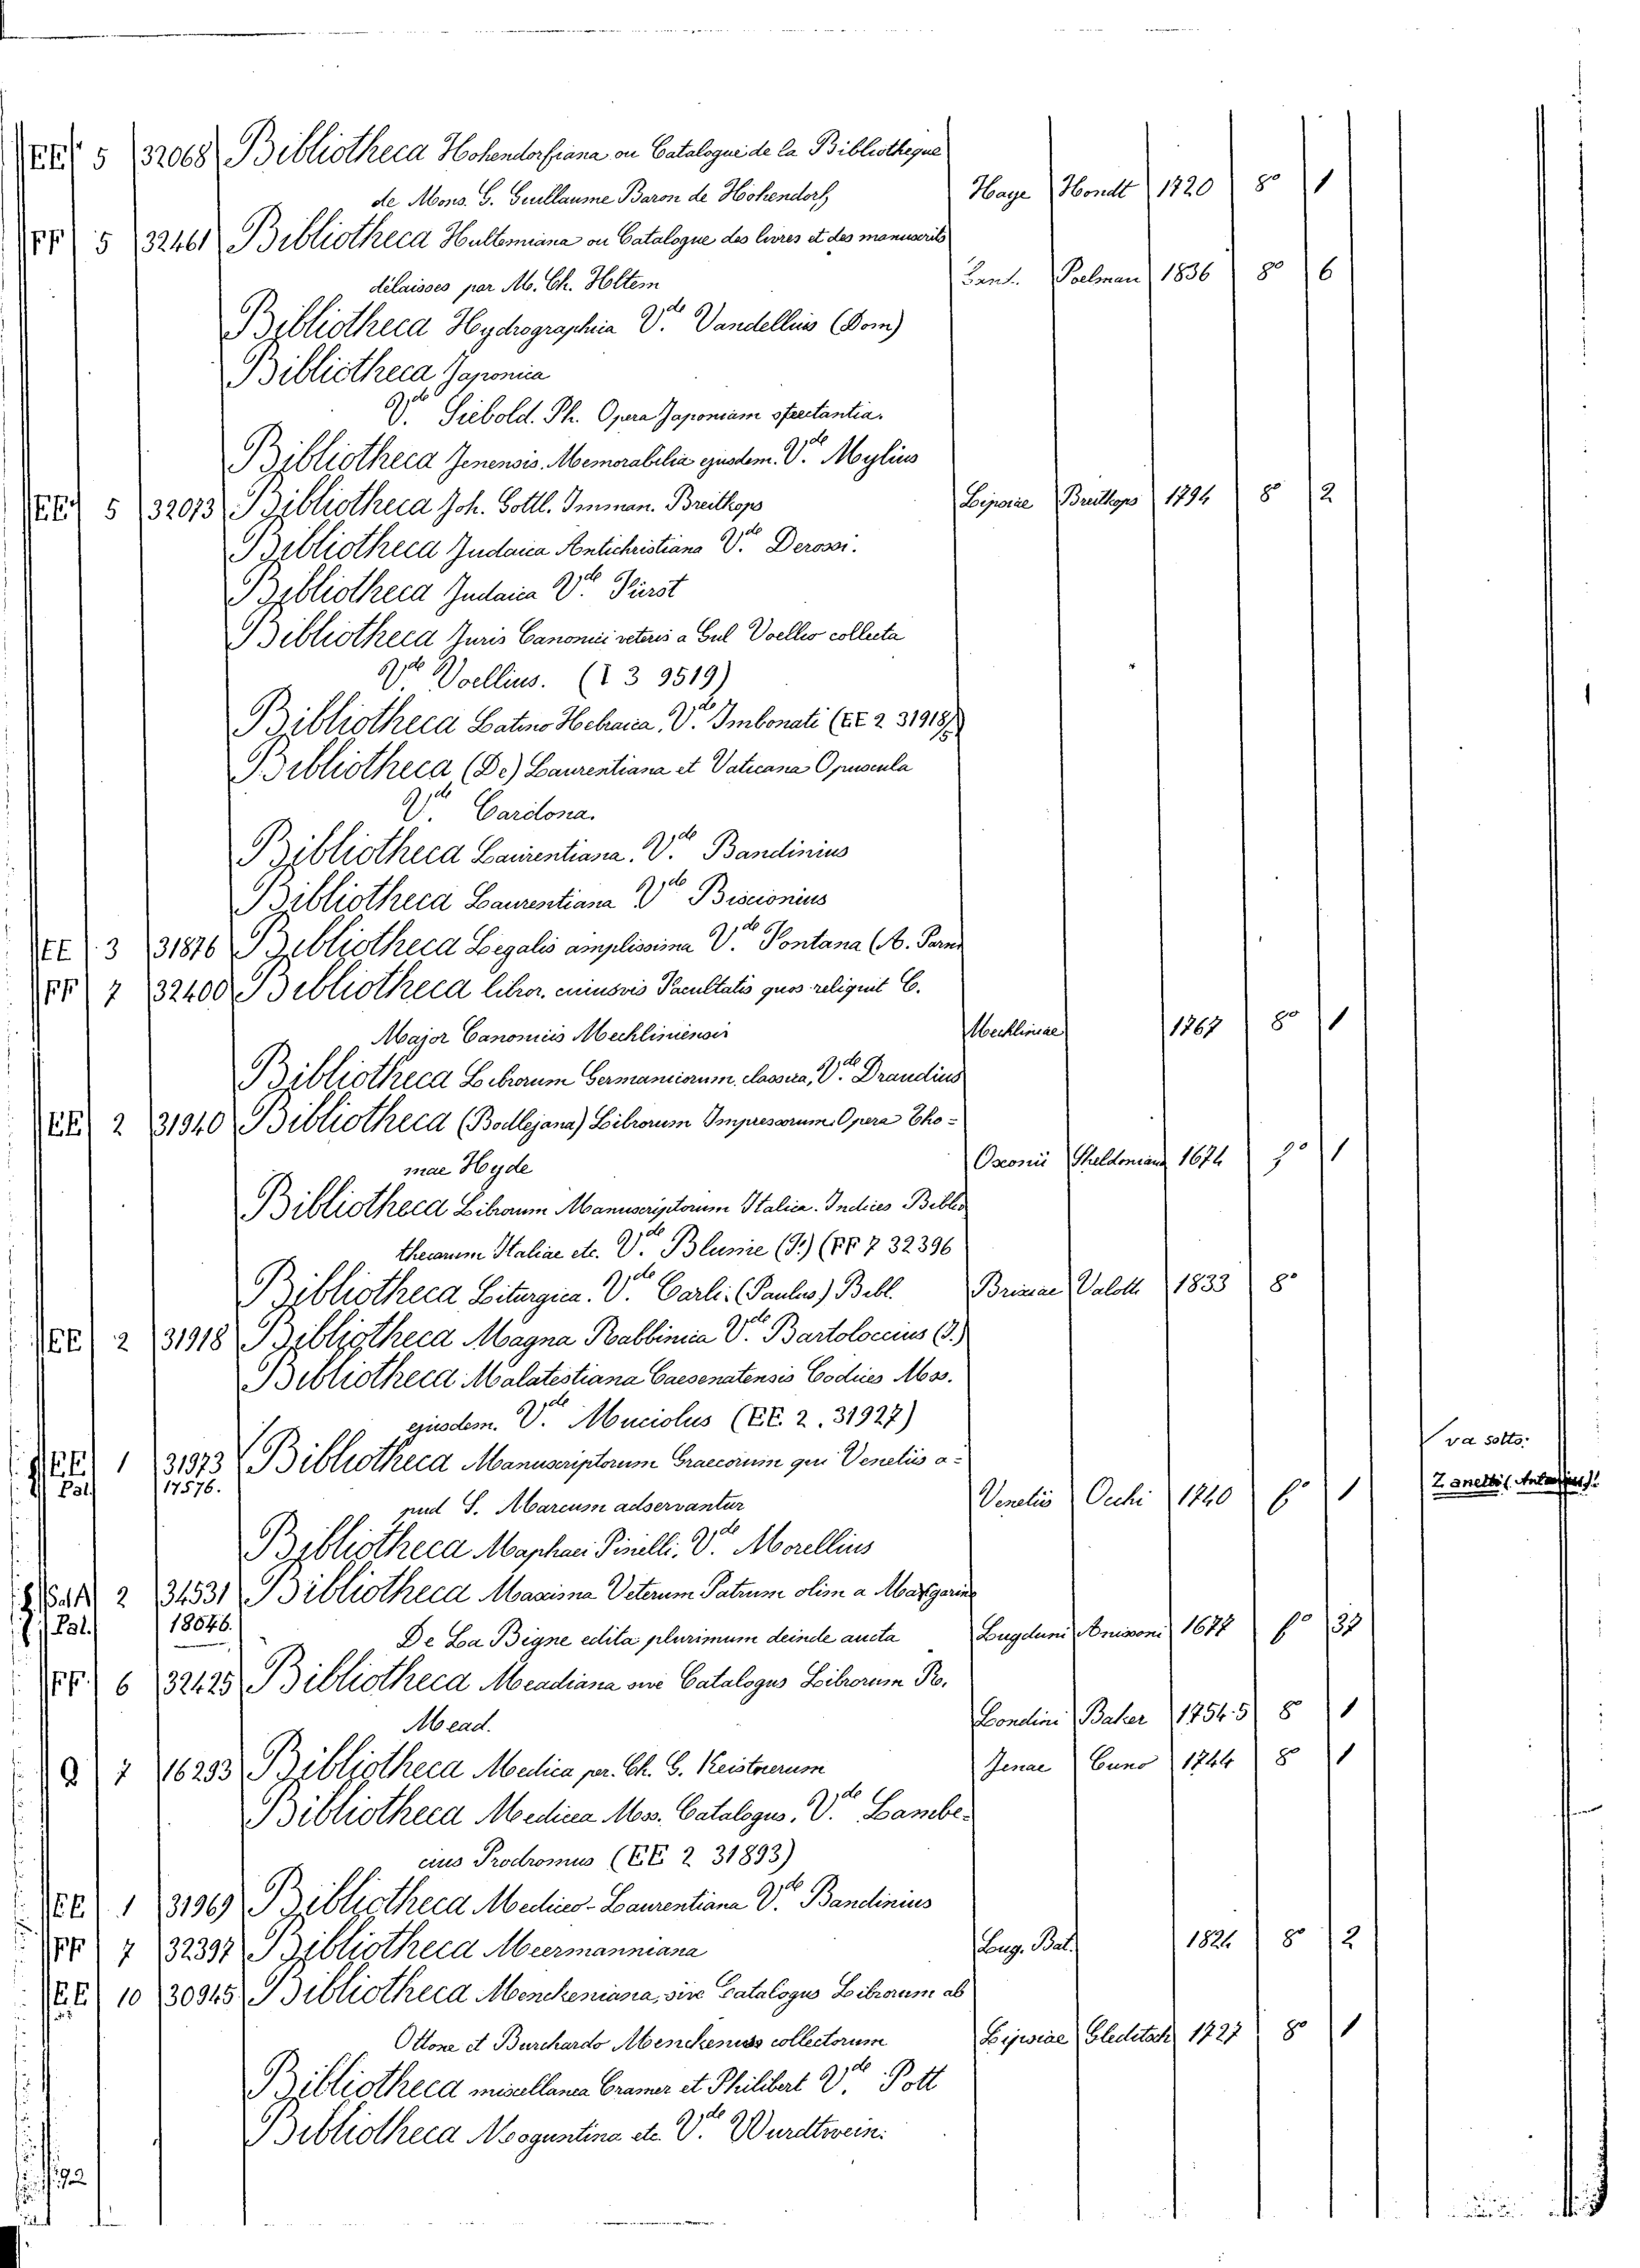 EE 5 32068 Bibliotheca Hohendorfiana ou Catalogue de la Bibliotheque
de Mons. G. Guillaume Baron de Hohendorf Haye Hondt 1720 8º 1
FF 5 32461 Bibliotheca Hultemiana ou Catalogue des livres et des manuscrits
délaissés par M. Ch. Holtem Gant. Poelman 1836 8º 6
Bibliotheca Hydrographia V.de Vandellius (Dom)
Bibliotheca Japonica
V.de Siebold. Ph. Opera Japoniam spectantia.
Bibliotheca Jenensis. Memorabilia ejusdem. V.de Mylius
EE 5 32073 Bibliotheca Joh. Gottl. Imman. Breitkops Lipsiae Breitkops 1794 8º 2
Bibliotheca Judaica Antichristiana V.de Derossi.
Bibliotheca Judaica V.de Fürst
Bibliotheca Juris Canonici veteris a Gul Voellio collecta
V.de Voellius. (I 3 9519)
Bibliotheca Latino Hebraica. V.de Imbonati (EE 2 31918)
Bibliotheca (De) Laurentiana et Vaticana Opuscula
V.de Cardona.
Bibliotheca Laurentiana. V.de Bandinius
Bibliotheca Laurentiana V.de Biscionius
EE 3 31876 Bibliotheca Legalis amplissima V.de Fontana (A.
FF 7 32400 Bibliotheca libror. cuiusvis Facultatis quos reliquit C.
Major Canonicis Mechliniensis Mechliniae 1767 8º 1
Bibliotheca Librorum Germanicorum classica, V.de Draudius
EE 2 31940 Bibliotheca (Bodlejana) Librorum Impressorum Opera Tho-
mae Hyde Oxonii Sheldoniano 1674 1
Bibliotheca Librorum Manuscriptorum Italica. Indices Biblio
thecarum Italiae etc. V.de Blumie (F.) (FF 7 32396
Bibliotheca Liturgica. V.de Carli. (Paulus) Bibl. Brixiae Valotti 1833 8º
EE 2 31918 Bibliotheca Magna Rabbinica V.de Bartoloccius (J.)
Bibliotheca Malatestiana Caesenatensis Codices Mss.
ejusdem. V.de Muciolus (EE. 2. 31927)
EE 1 31973 Bibliotheca Manuscriptorum Graecorum qui Venetiis a-
Pal 17576. pud S. Marcum adservantur Venetiis Occhi 1740 fº 1 va sotto: Zanetti (Antonius).
Bibliotheca Maphaei Pinelli. V.de Morellius
2 34531 Bibliotheca Maxima Veterum Patrum olim a Margarino
Pal. 18046. De La Bigne edita plurimum deinde aucta Lugduni Anissoni 1677 fº 27
FF. 6 32425 Bibliotheca Meadiana sive Catalogus Librorum R.
Mead. Londini Baker 1754.5 8 1
Q 7 16293 Bibliotheca Medica per. Ch. G. Keistnerum Jenae Cuno 1744 8º 1
Bibliotheca Medicea Mss. Catalogus. V.de Lambe-
cius Prodromus (EE 2 31893)
EE 1 31969 Bibliotheca Mediceo-Laurentiana V.de Bandinius
FF 7 32397 Bibliotheca Meermanniana Lug. Bat. 1824 8º 2
EE 10 30945 Bibliotheca Menckeniana, sive Catalogus Librorum ab
Ottone et Burchardo Menckeniis collectorum Lipsiae Gleditsch 1727 8º 1
Bibliotheca miscellanea Cramer et Philibert V.de Pott
Bibliotheca Moguntina etc. V.de Wurdtwein.
92